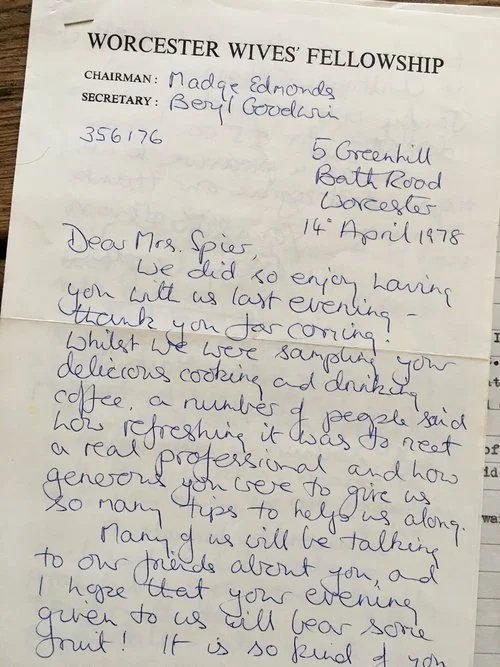 WORCESTER WIVES' FELLOWSHIP
CHAIRMAN: Madge Edmonds
SECRETARY: Beryl Goodwin
356176
5 Greenhill
Bath Road
Worcester
14th April 1978
Dear Mrs. Spier,
We did so enjoy having
you with us last evening -
thank you for coming!
Whilst we were sampling your
delicious cooking and drinking
coffee, a number of people said
how refreshing it was to meet
a real professional and how
generous you were to give us
so many tips to help us along.
Many of us will be talking
to our friends about you, and
I hope that your evening
given to us will bear some
fruit! It is so kind of you